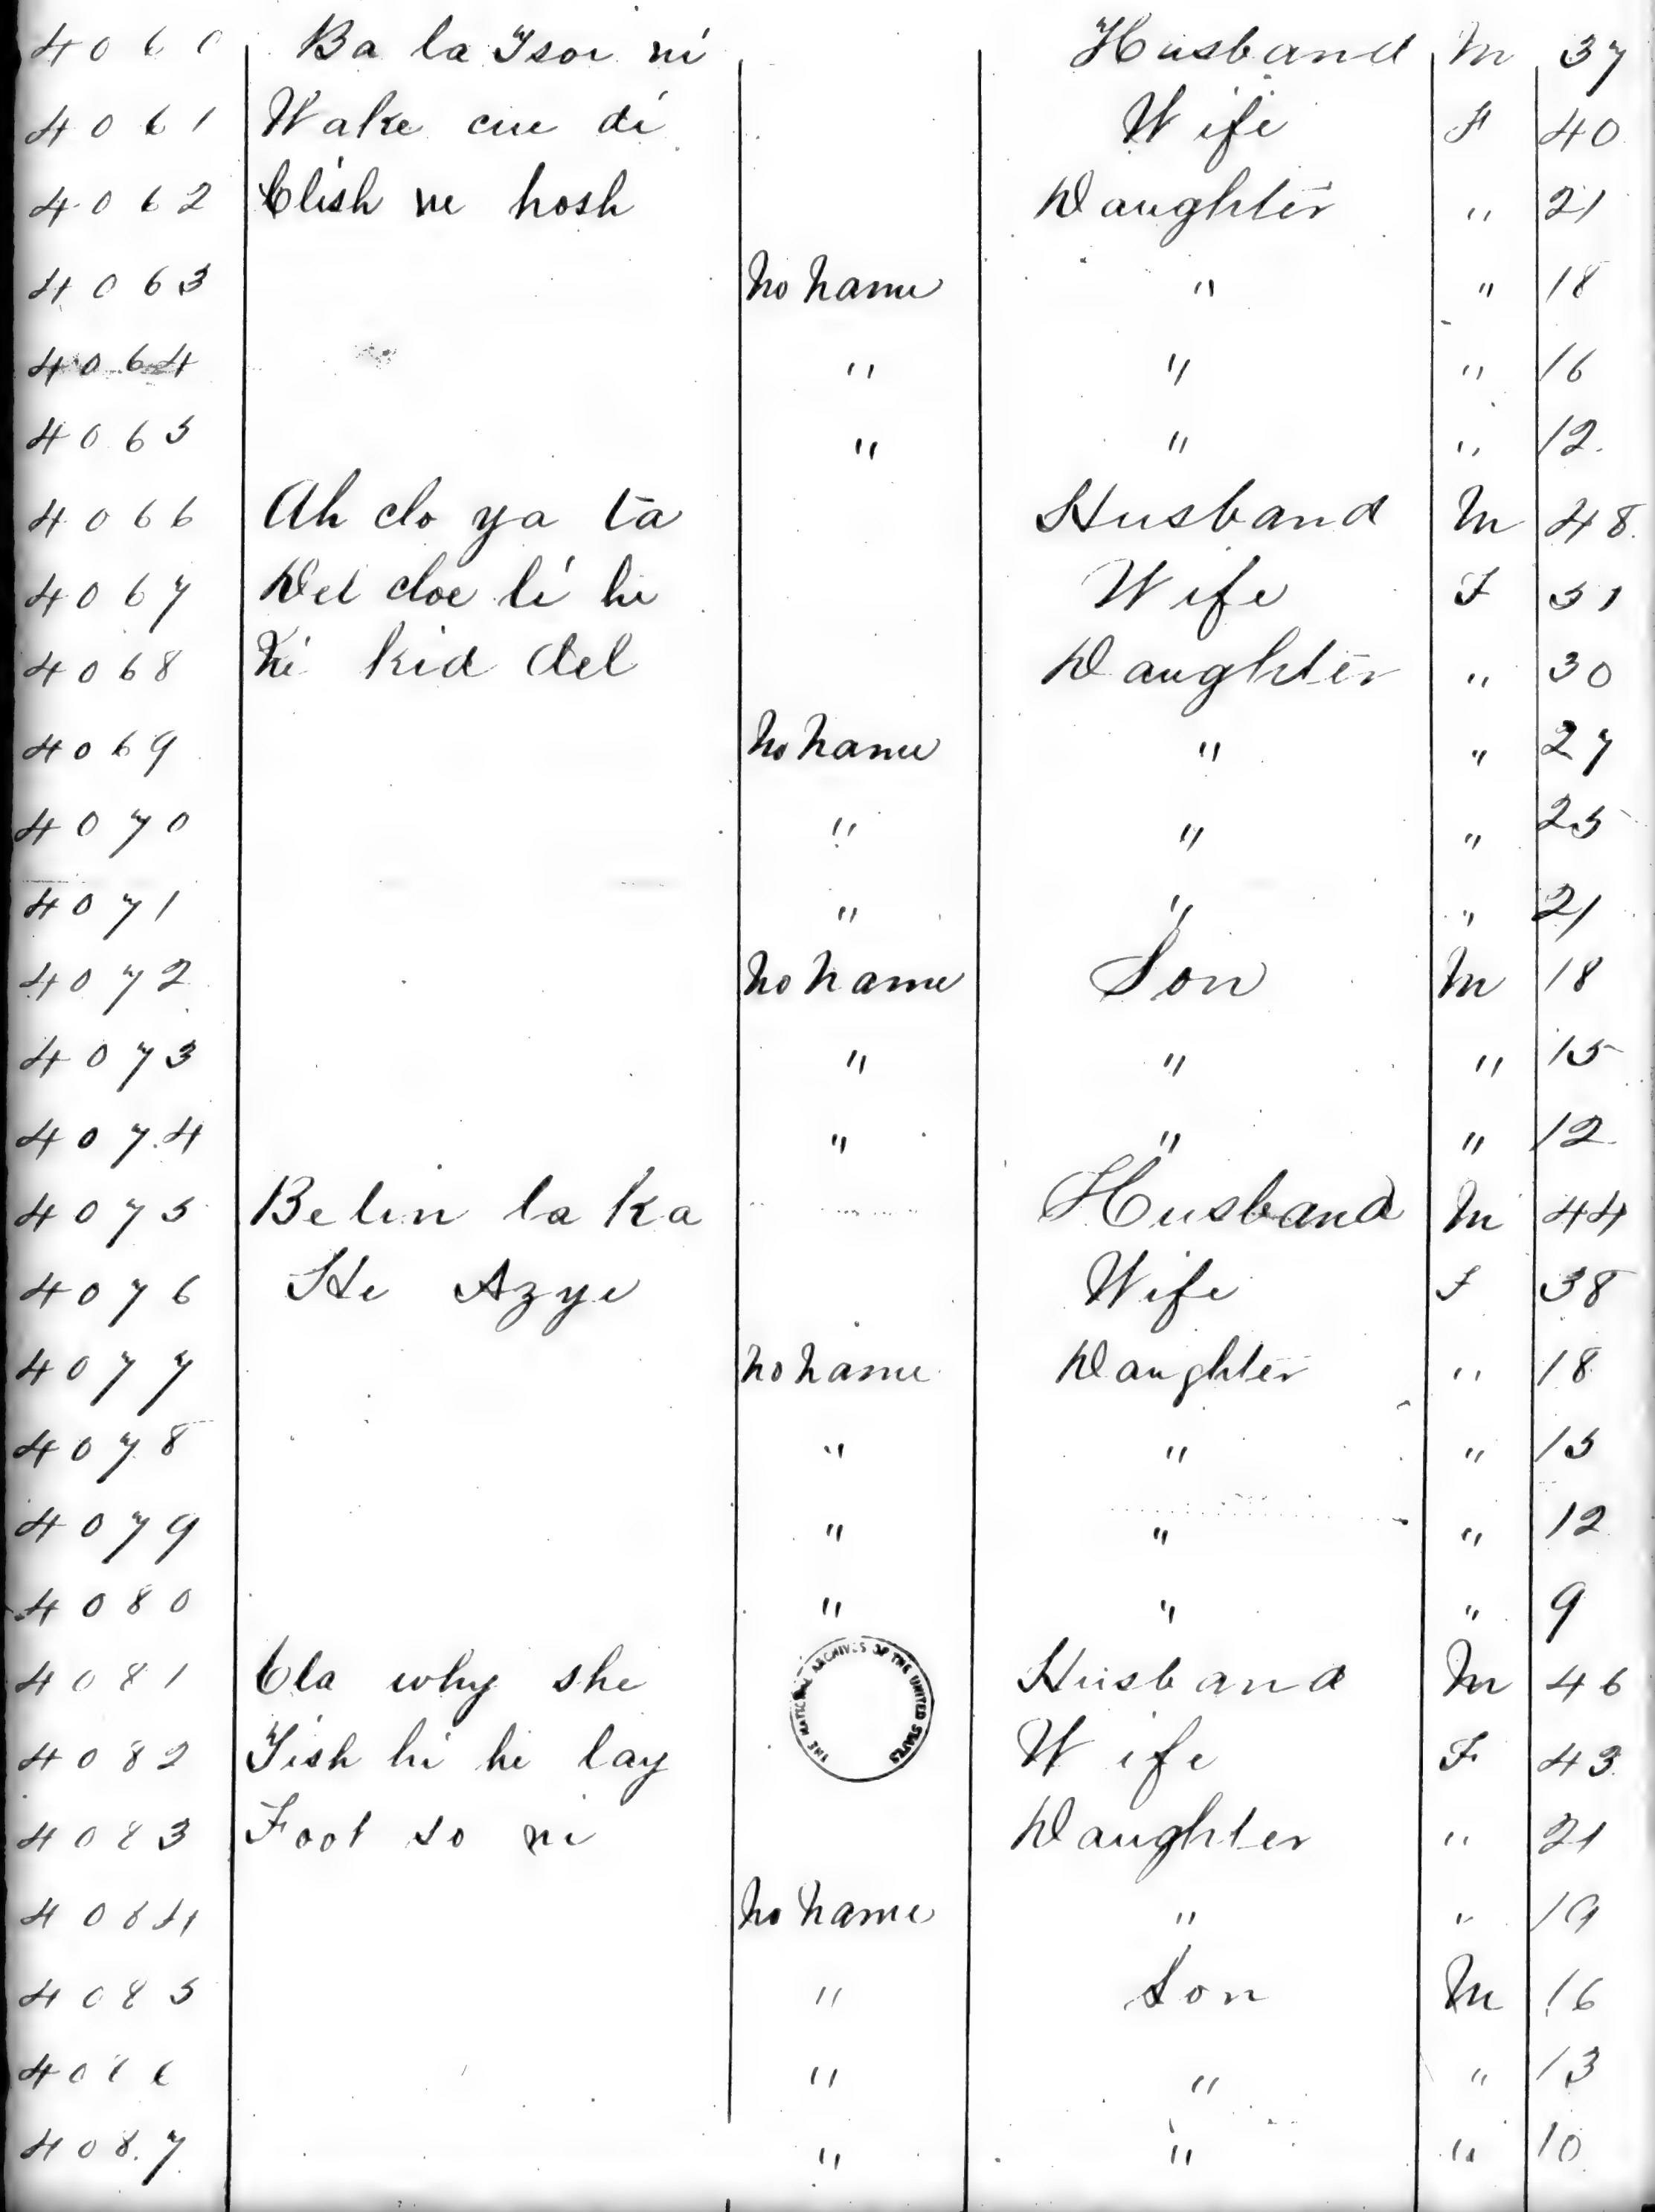 4060 Ba la Tsoi ni Husband M 37
4061 Wake cue di Wife F 40
4062 Clish ne hosh Daughter " 21
4063 No Name " " 18
4064 " " " 16
4065 " " " 12
4066 Ah clo ya ta Husband M 48
4067 Del cloe li hi Wife F 51
4068 Ki kid del Daughter " 30
4069 No Name " " 27
4070 " " " 25
4071 " " " 21
4072 No Name Son M 18
4073 " " " 15
4074 " " " 12
4075 Belin la Ka Husband M 44
4076 He Azye Wife F 38
4077 No Name Daughter " 18
4078 " " " 15
4079 " " " 12
4080 " " " 9
4081 Cla why she Husband M 46
4082 Tish hi he lay Wife F 43
4083 Foot so ni Daughter " 21
4084 No Name " " 19
4085 " Son M 16
4086 " " " 13
4087 " " " 10
THE NATIONAL ARCHIVES OF THE UNITED STATES